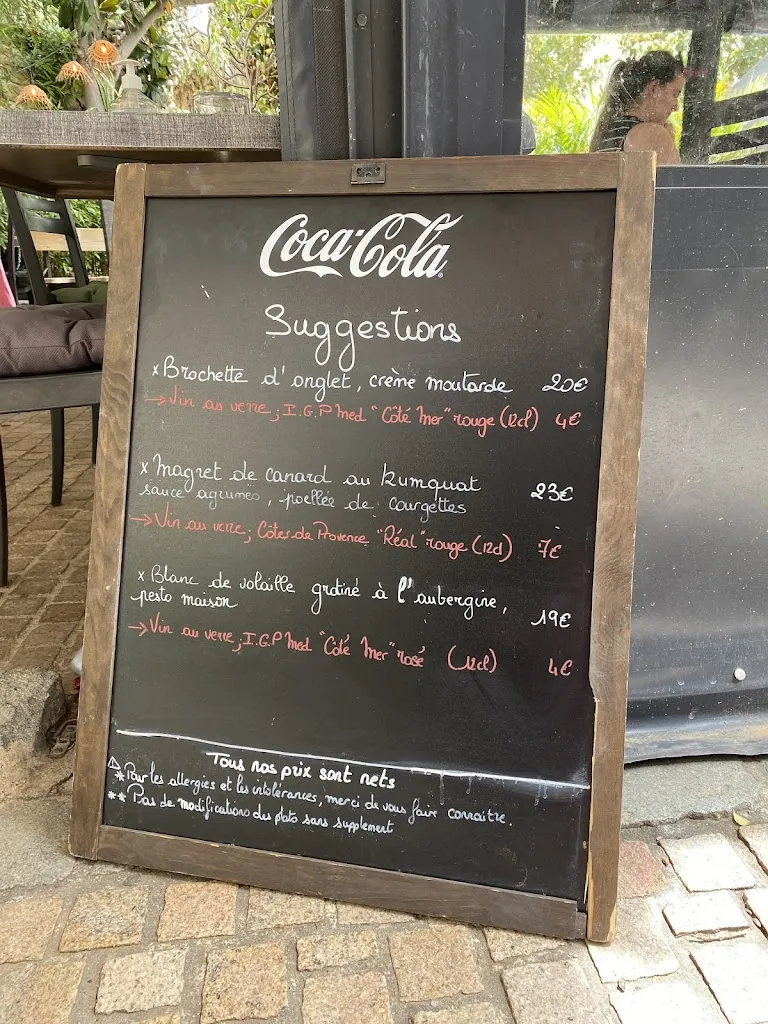 Coca-Cola
Suggestions
x Brochette d'onglet, crème moutarde 20€
→ Vin au verre; I.G.P Med "Côté Mer" rouge (12cl) 4€
x Magret de canard au kumquat
sauce agrumes, poellée de courgettes 23€
→ Vin au verre; Côtes de Provence "Réal" rouge (12cl) 7€
x Blanc de volaille gratiné à l'aubergine,
pesto maison 19€
→ Vin au verre; I.G.P Med "Côté Mer" rosé (12cl) 4€
Tous nos prix sont nets
⚠ * Pour les allergies et les intolérances, merci de vous faire connaitre.
** Pas de modifications des plats sans supplement